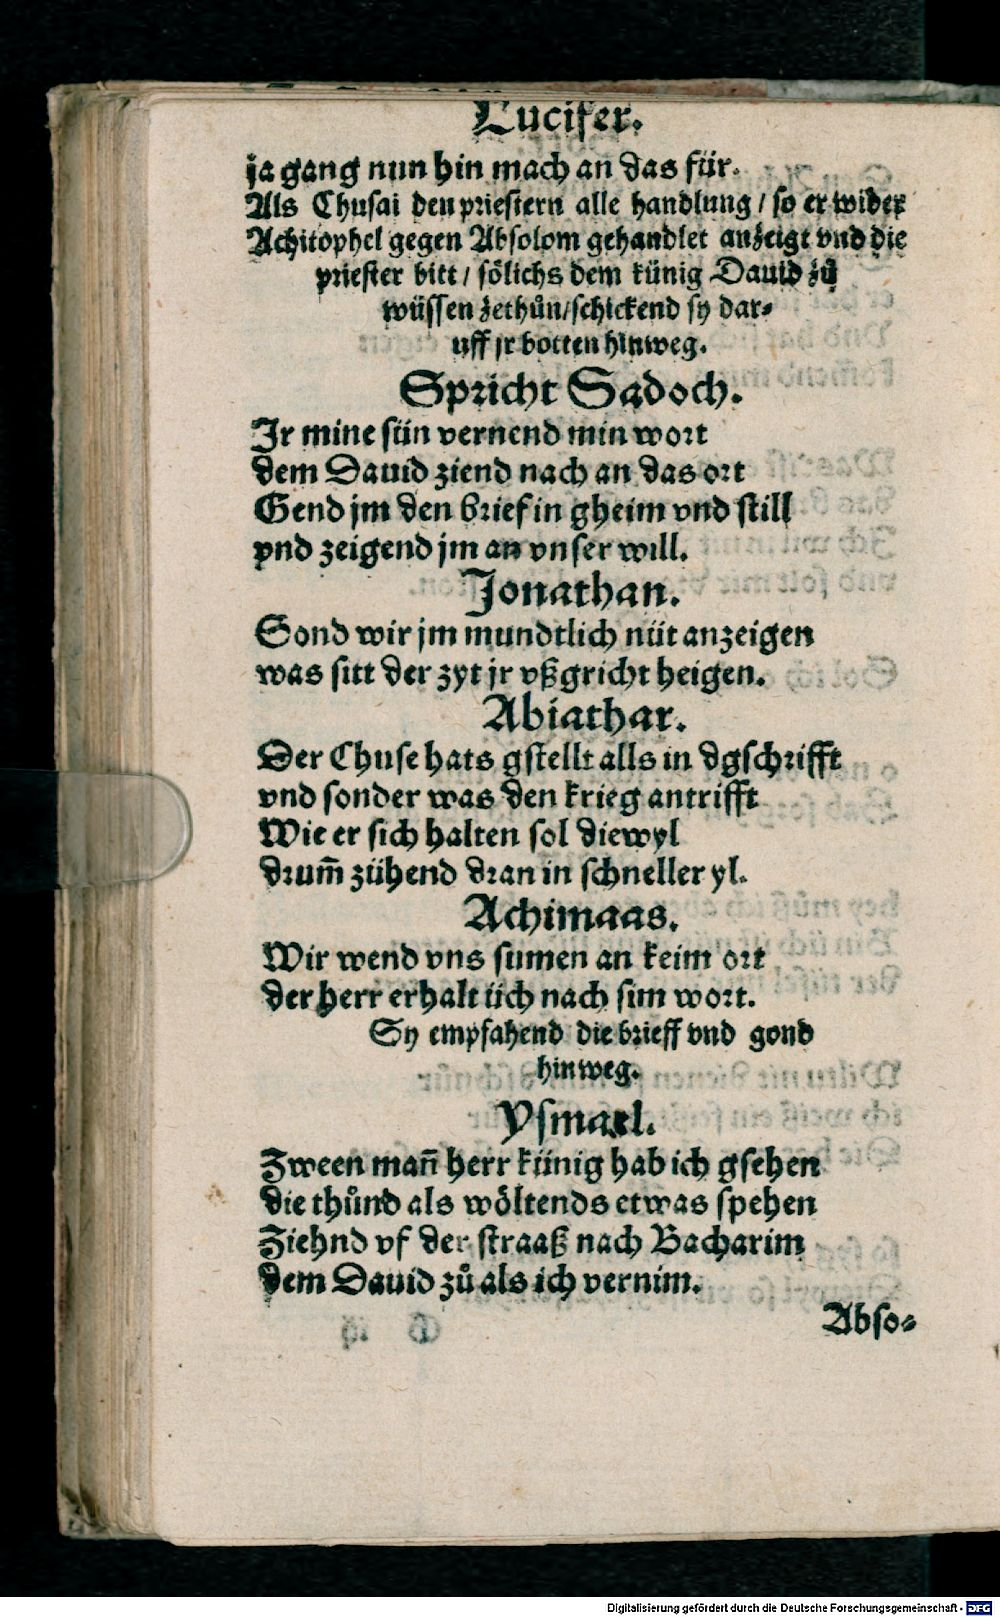 Lucifer.
ja gang nun hin mach an das für.
Als Chusai den priestern alle handlung / so er wider
Achitophel gegen Absolom gehandlet anzeigt vnd die
priester bitt / sölichs dem künig Dauid zů
wüssen zethůn / schickend sy dar⸗
uff jr botten hinweg.
Spricht Sadoch.
Jr mine sün vernend min wort
dem Dauid ziend nach an das ort
Gend jm den brief in gheim vnd still
vnd zeigend jm an vnser will.
Jonathan.
Sond wir jm mundtlich nüt anzeigen
was sitt der zyt jr vßgricht heigen.
Abiathar.
Der Chuse hats gstellt alls in dgschrifft
vnd sonder was den krieg antrifft
Wie er sich halten sol diewyl
drum̃ zühend dran in schneller yl.
Achimaas.
Wir wend vns sumen an keim ort
der herr erhalt üch nach sim wort.
Sy empfahend die brieff vnd gond
hinweg.
Ysmael.
Zween man̄ herr künig hab ich gsehen
die thůnd als wöltends etwas spehen
Ziehnd vf der straaß nach Bacharim
dem Dauid zů als ich vernim.
Abso⸗
Digitalisierung gefördert durch die Deutsche Forschungsgemeinschaft - DFG